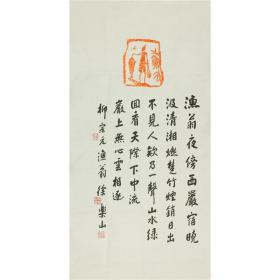 漁翁夜傍西巖宿曉
汲清湘燃楚竹煙銷日出
不見人欸乃一聲山水綠
回看天際下中流
巖上無心雲相逐
柳宗元漁翁 徐樂山